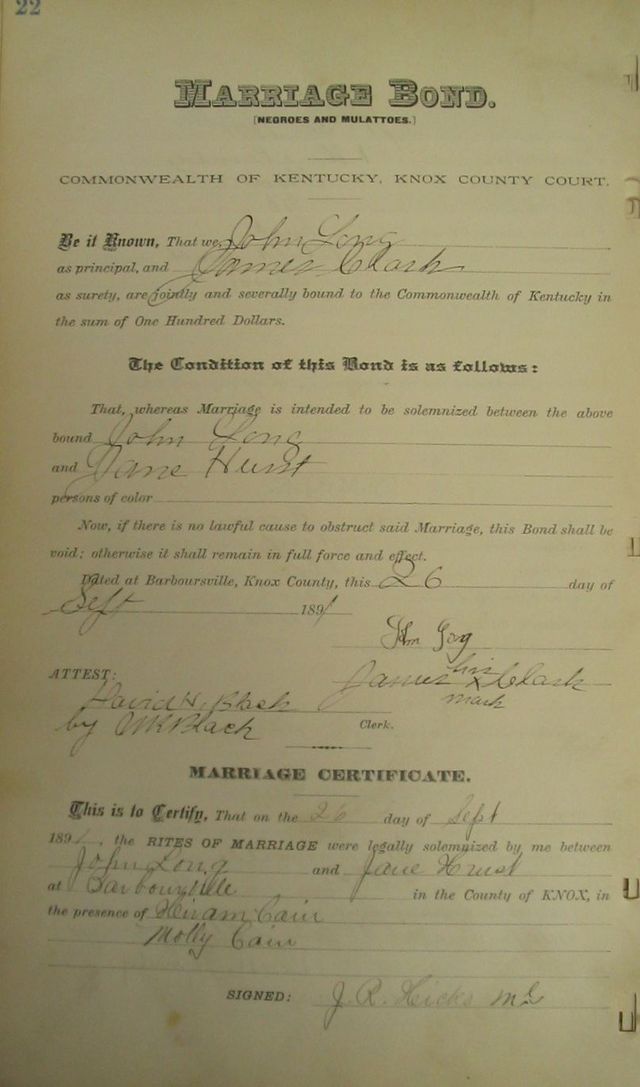 22
MARRIAGE BOND.
[NEGROES AND MULATTOES.]
COMMONWEALTH OF KENTUCKY, KNOX COUNTY COURT.
Be it Known, That we, John Long
as principal, and James Clark
as surety, are jointly and severally bound to the Commonwealth of Kentucky in
the sum of One Hundred Dollars.
The Condition of this Bond is as follows:
That, whereas Marriage is intended to be solemnized between the above
bound John Long
and Jane Hurst
persons of color
Now, if there is no lawful cause to obstruct said Marriage, this Bond shall be
void; otherwise it shall remain in full force and effect.
Dated at Barboursville, Knox County, this 26 day of
Sept 1891
James his x mark Clark
ATTEST:
David H. Black
by W.R. Black Clerk.
MARRIAGE CERTIFICATE.
This is to Certify, That on the 26 day of Sept
1891, the RITES OF MARRIAGE were legally solemnized by me between
John Long and Jane Hurst
at Barbourville in the County of KNOX, in
the presence of Hiram Cain
Molly Cain
SIGNED: J. R. Hicks MG